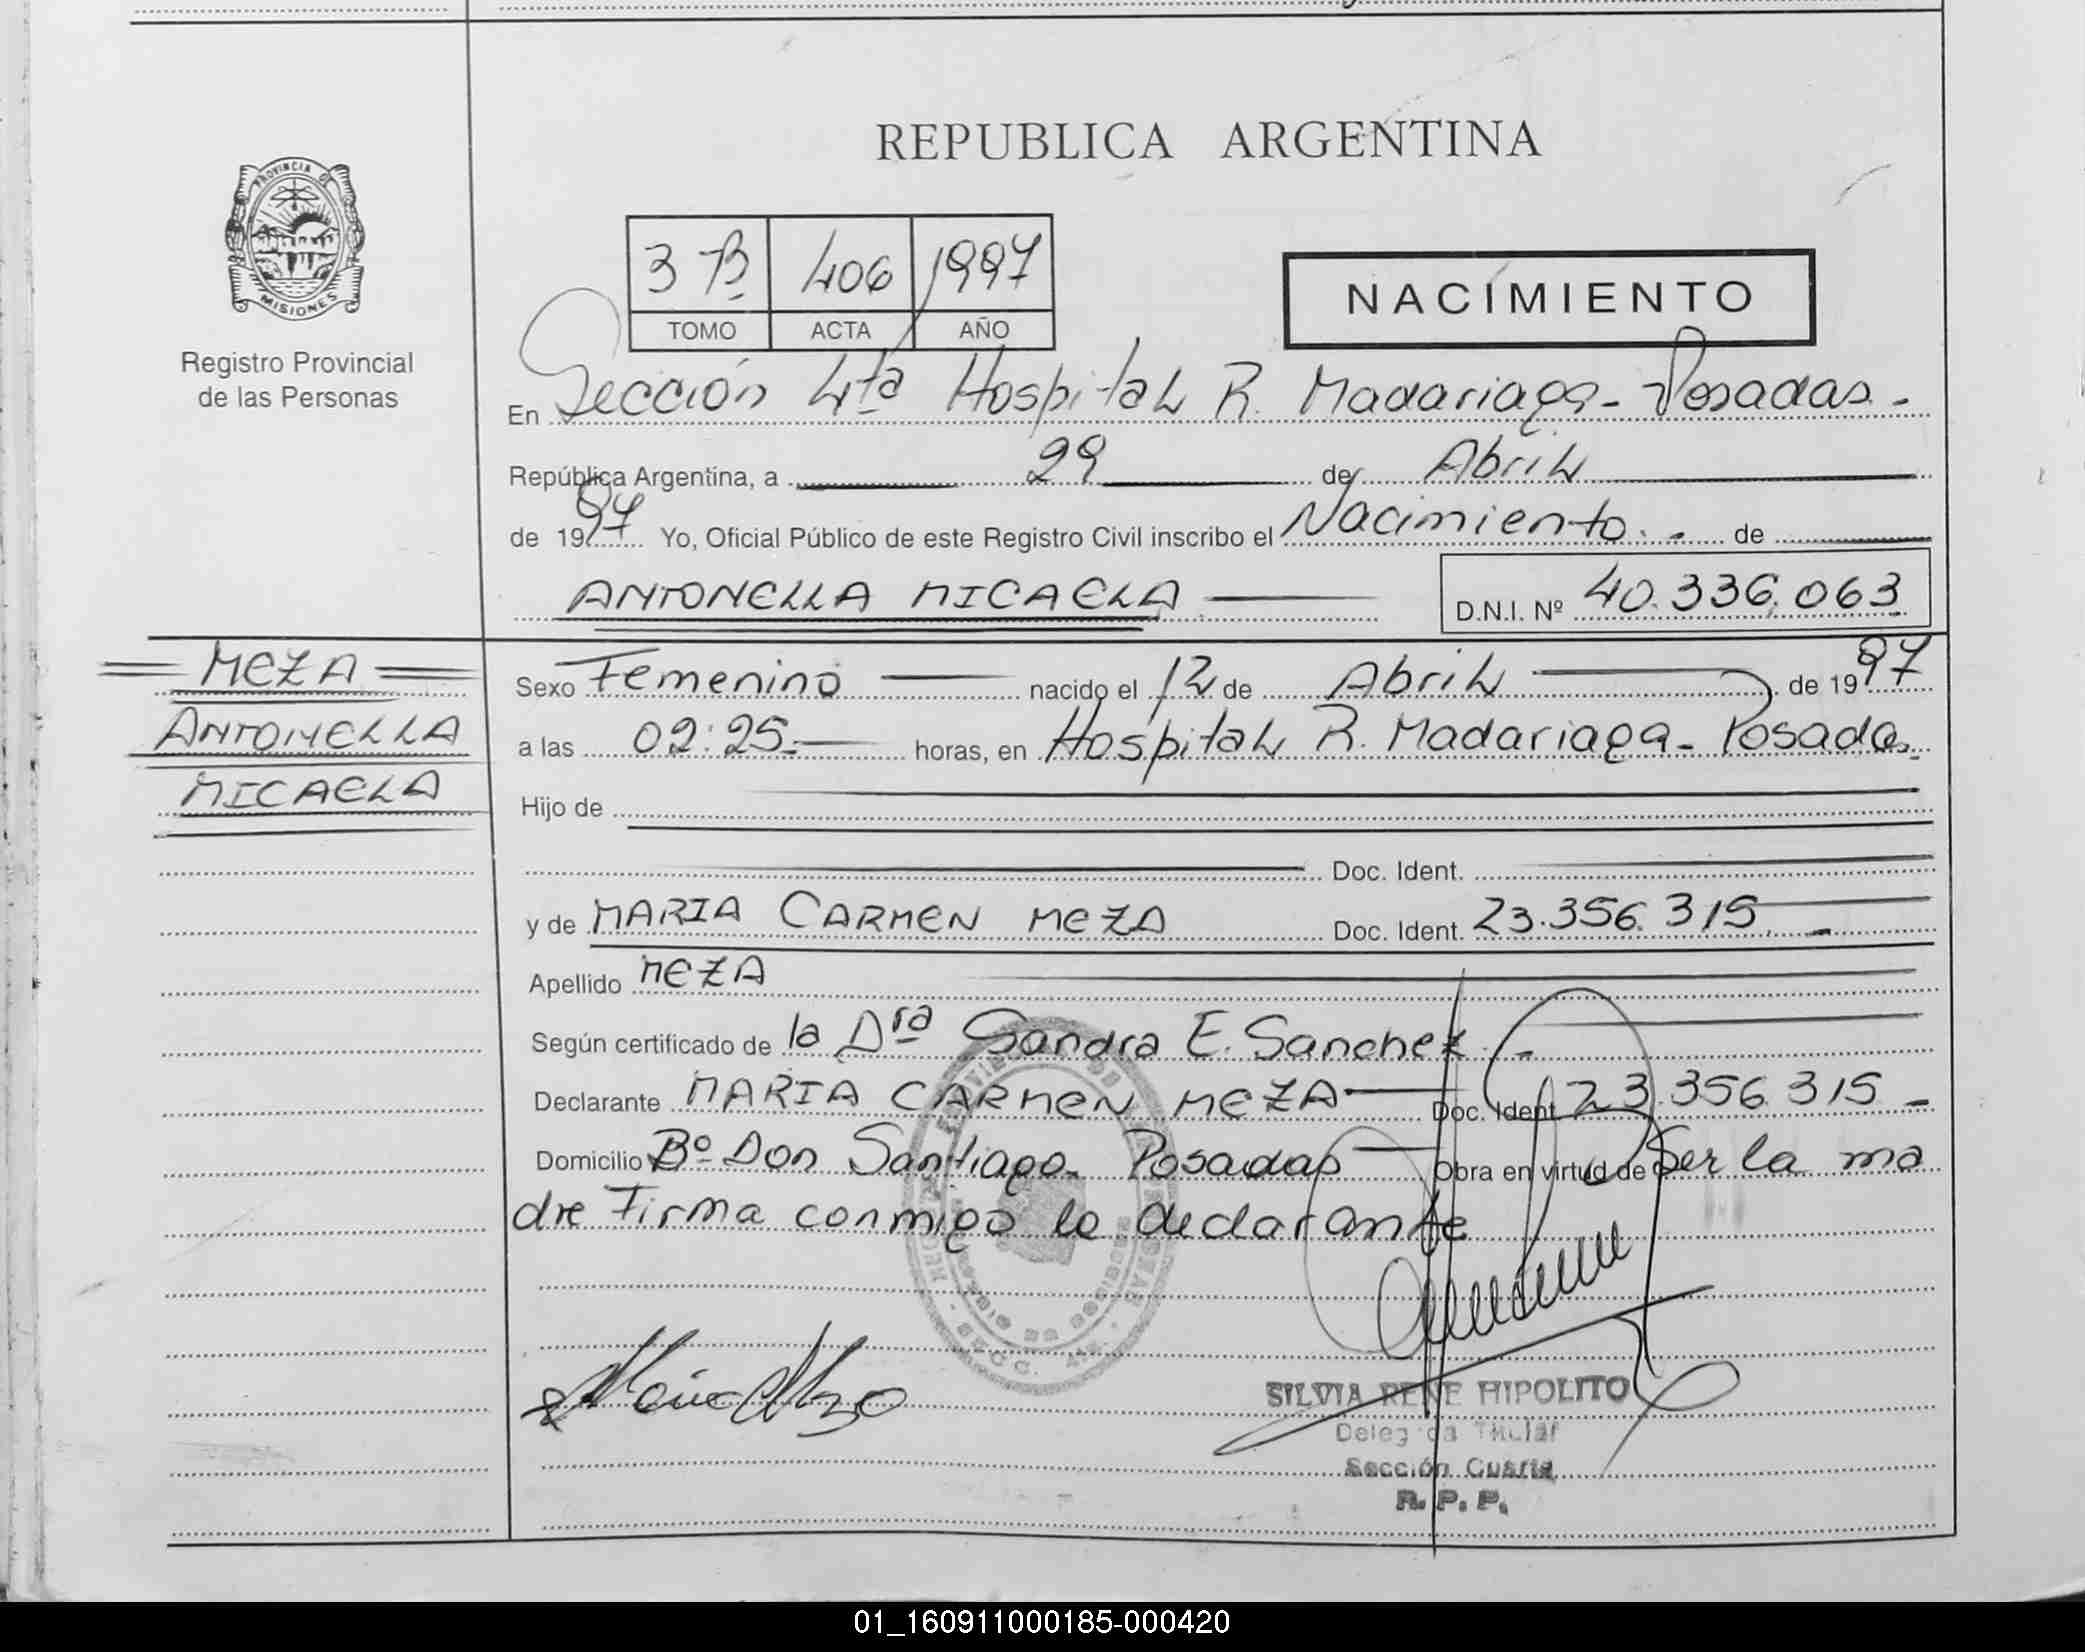 REPUBLICA ARGENTINA
PROVINCIA DE
MISIONES
Registro Provincial
de las Personas
3 B 406 1997
TOMO ACTA AÑO
NACIMIENTO
En Sección 4ta Hospital R. Madariaga - Posadas.-
República Argentina, a 29 de Abril
de 1997 Yo, Oficial Público de este Registro Civil inscribo el Nacimiento.- de
ANTONELLA MICAELA D.N.I. Nº 40.336.063
MEZA
ANTONELLA
MICAELA
Sexo Femenino nacido el 12 de Abril de 1997
a las 02:25.- horas, en Hospital R. Madariaga - Posadas.-
Hijo de
Doc. Ident.
y de MARIA CARMEN MEZA Doc. Ident. 23.356.315.-
Apellido MEZA
Según certificado de la Dra Sandra E. Sanchez.-
Declarante MARIA CARMEN MEZA Doc. Ident 23.356.315 -
Domicilio Bº Don Santiago - Posadas Obra en virtud de Ser la ma
dre Firma conmigo la declarante
SILVIA RENE HIPOLITO
Delegada Titular
Sección Cuarta
R. P. P.
01_160911000185-000420